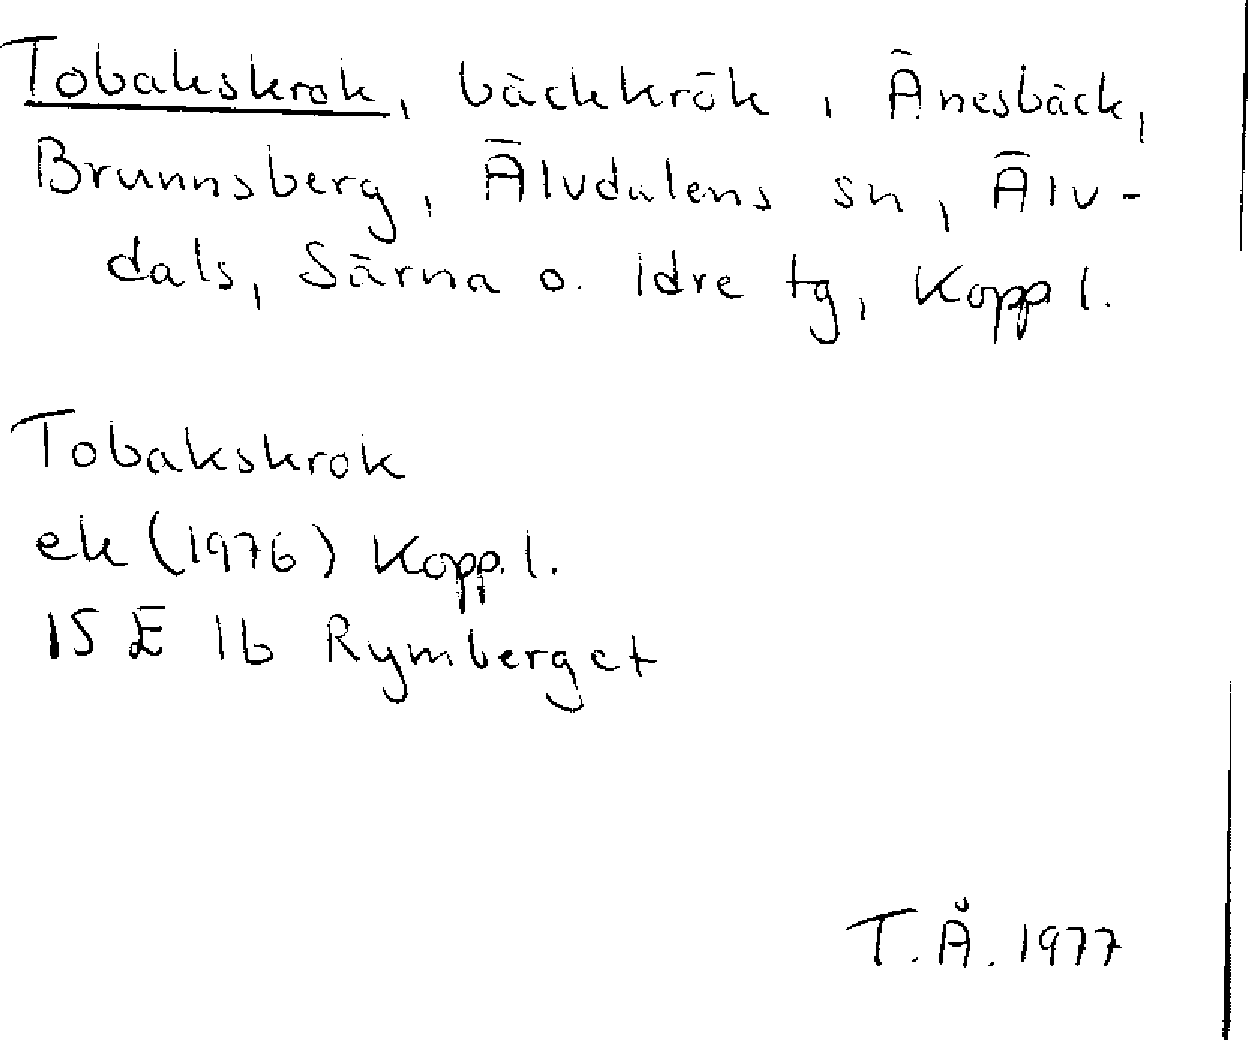 Tobakskrok, bäckkrök, Änesbäck,
Brunnsberg, Älvdalens sn, Älv-
dals, Särna o. Idre tg, Kopp l.
Tobakskrok
ek (1976) Kopp. l.
15 E 1b Rymberget
T.Å. 1977